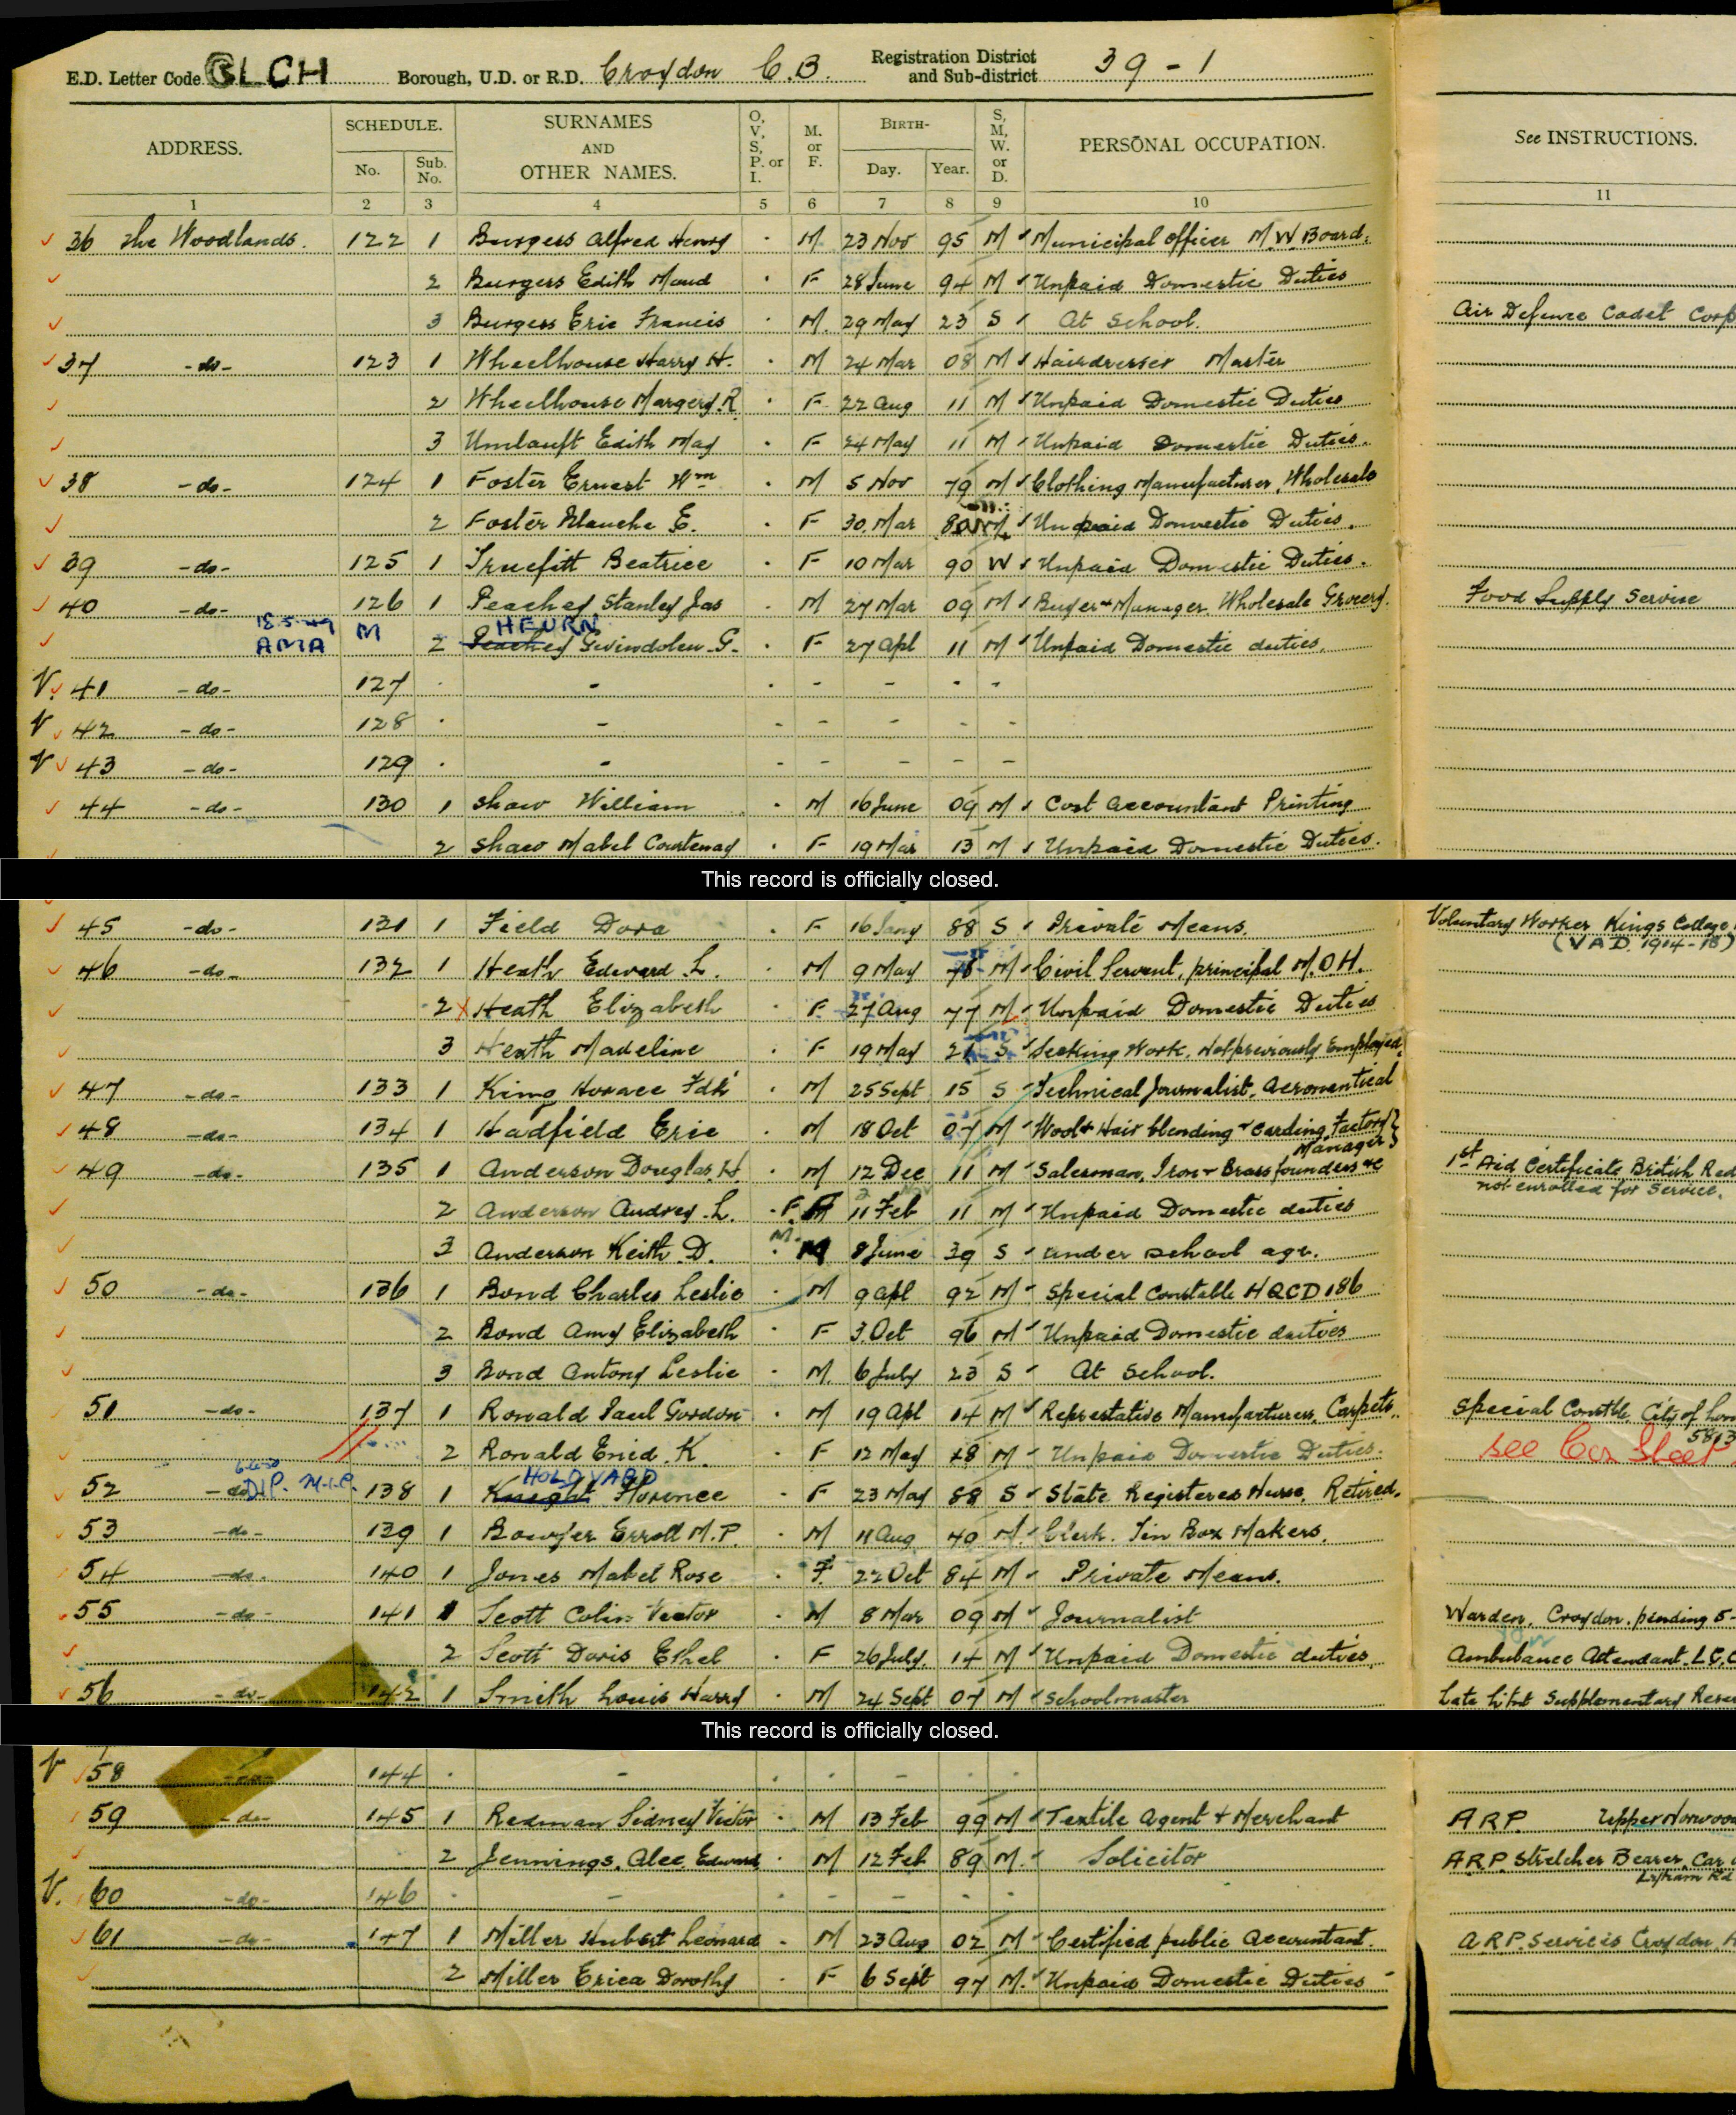 E.D. Letter Code GLCH Borough, U.D. or R.D. Croydon C.B. Registration District and Sub-district 39 - 1
ADDRESS. SCHEDULE. No. Sub. No. SURNAMES AND OTHER NAMES. O, V, S, P. or I. M. or F. BIRTH- Day. Year. S, M, W. or D. PERSONAL OCCUPATION. See INSTRUCTIONS.
1 2 3 4 5 6 7 8 9 10 11
36 The Woodlands. 122 1 Burgess Alfred Henry M 23 Nov 95 M Municipal Officer M.W. Board.
2 Burgess Edith Maud F 28 June 94 M Unpaid Domestic Duties
3 Burgess Eric Francis M. 29 May 23 S At School. Air Defence Cadet Corp
37 -do- 123 1 Wheelhouse Harry H. M 24 Mar 08 M Hairdresser Master
2 Wheelhouse Margery. R F 22 Aug 11 M Unpaid Domestic Duties
3 Umlauft Edith May F 24 May 11 M Unpaid Domestic Duties.
38 -do- 124 1 Foster Ernest Wm M 5 Nov 79 M Clothing Manufacturer, Wholesale
2 Foster Blanche E. F 30. Mar Unpaid Domestic Duties.
39 -do- 125 1 Truefitt Beatrice F 10 Mar 90 W Unpaid Domestic Duties.
40 -do- 126 1 Peachey Stanley Jas M 27 Mar 09 M Buyer & Manager Wholesale Grocery. Food Supply Service
18-5-49 AMA M HEURN
2 Peachey Gwindolen. G. F 27 Apl 11 M Unpaid Domestic duties.
V. 41 -do- 127 - - - - -
V 42 -do- 128 - - - - - -
V 43 -do- 129 - - - - - -
44 -do- 130 1 Shaw William M 16 June 09 M Cost Accountant Printing
2 Shaw Mabel Courtenay F 19 Mar 13 M Unpaid Domestic Duties.
This record is officially closed.
45 -do- 131 1 Field Dora F 16 Jany 88 S Private Means. Voluntary Worker Kings College
(VAD. 1914-18)
46 -do- 132 1 Heath Edward L. M 9 May M Civil Servant, principal M.O.H.
2 Heath Elizabeth F. 27 Aug 77 M Unpaid Domestic Duties
3 Heath Madeline F 19 May 21 S Seeking Work, Not previously Employed.
47 -do- 133 1 King Horace Fdk M 25 Sept 15 S Technical Journalist, Aeronautical
48 -do- 134 1 Hadfield Eric M 18 Oct 07 M Wool & Hair blending & Carding Factory
Manager
49 -do- 135 1 Anderson Douglas. H. M 12 Dec 11 M Salesman, Iron & Brass founders &c 1st Aid Certificate British Red
not enrolled for Service.
2 Anderson Audrey. L. F. 11 Feb 11 M Unpaid Domestic duties
3 Anderson Keith. D. M. M 8 June 39 S under school age.
50 -do- 136 1 Bond Charles Leslie M 9 Apl 92 M Special Constable HQCD 186
2 Bond Amy Elizabeth F 3. Oct 96 M Unpaid Domestic duties
3 Bond Antony Leslie M. 6 July 23 S At School.
51 -do- 137 1 Ronald Paul Gordon M 19 Apl 14 M Represtative Manufacturers, Carpets. Special Constble, City of Lon
5813
2 Ronald Enid. K. F 12 May 18 M Unpaid Domestic Duties. See Cor Sheet
DIP. M-I-P. HOLDYARD
52 -do- 138 1 Knight Florence F 23 May 88 S State Registered Nurse, Retired.
53 -do- 139 1 Bowyer Erroll M. P. M 11 Aug M. Clerk. Tin Box Makers.
54 -do- 140 1 Jones Mabel Rose F. 22 Oct 84 M Private Means.
55 -do- 141 1 Scott Colin Victor M 8 Mar 09 M Journalist Warden, Croydon, pending 5-
2 Scott Doris Ethel F 26 July. 14 M Unpaid Domestic duties. Ambulance Attendant. L.C.C
56 -do- 142 1 Smith Louis Harry M 24 Sept 07 M Schoolmaster Late Supplementary Reser
This record is officially closed.
V 58 -do- 144 - -
59 -do- 145 1 Redman Sidney Victor M 13 Feb 99 M Textile Agent & Merchant ARP. Upper Norwood
2 Jennings, Alec Edward M 12 Feb 89 M. Solicitor A.R.P. Stretcher Bearer, Car
V. 60 -do- 146 - - - - -
61 -do- 147 1 Miller Hubert Leonard M 23 Aug 02 M Certified public Accountant. A.R.P. Services Croydon, H
2 Miller Erica Dorothy F 6 Sept 97 M. Unpaid Domestic Duties